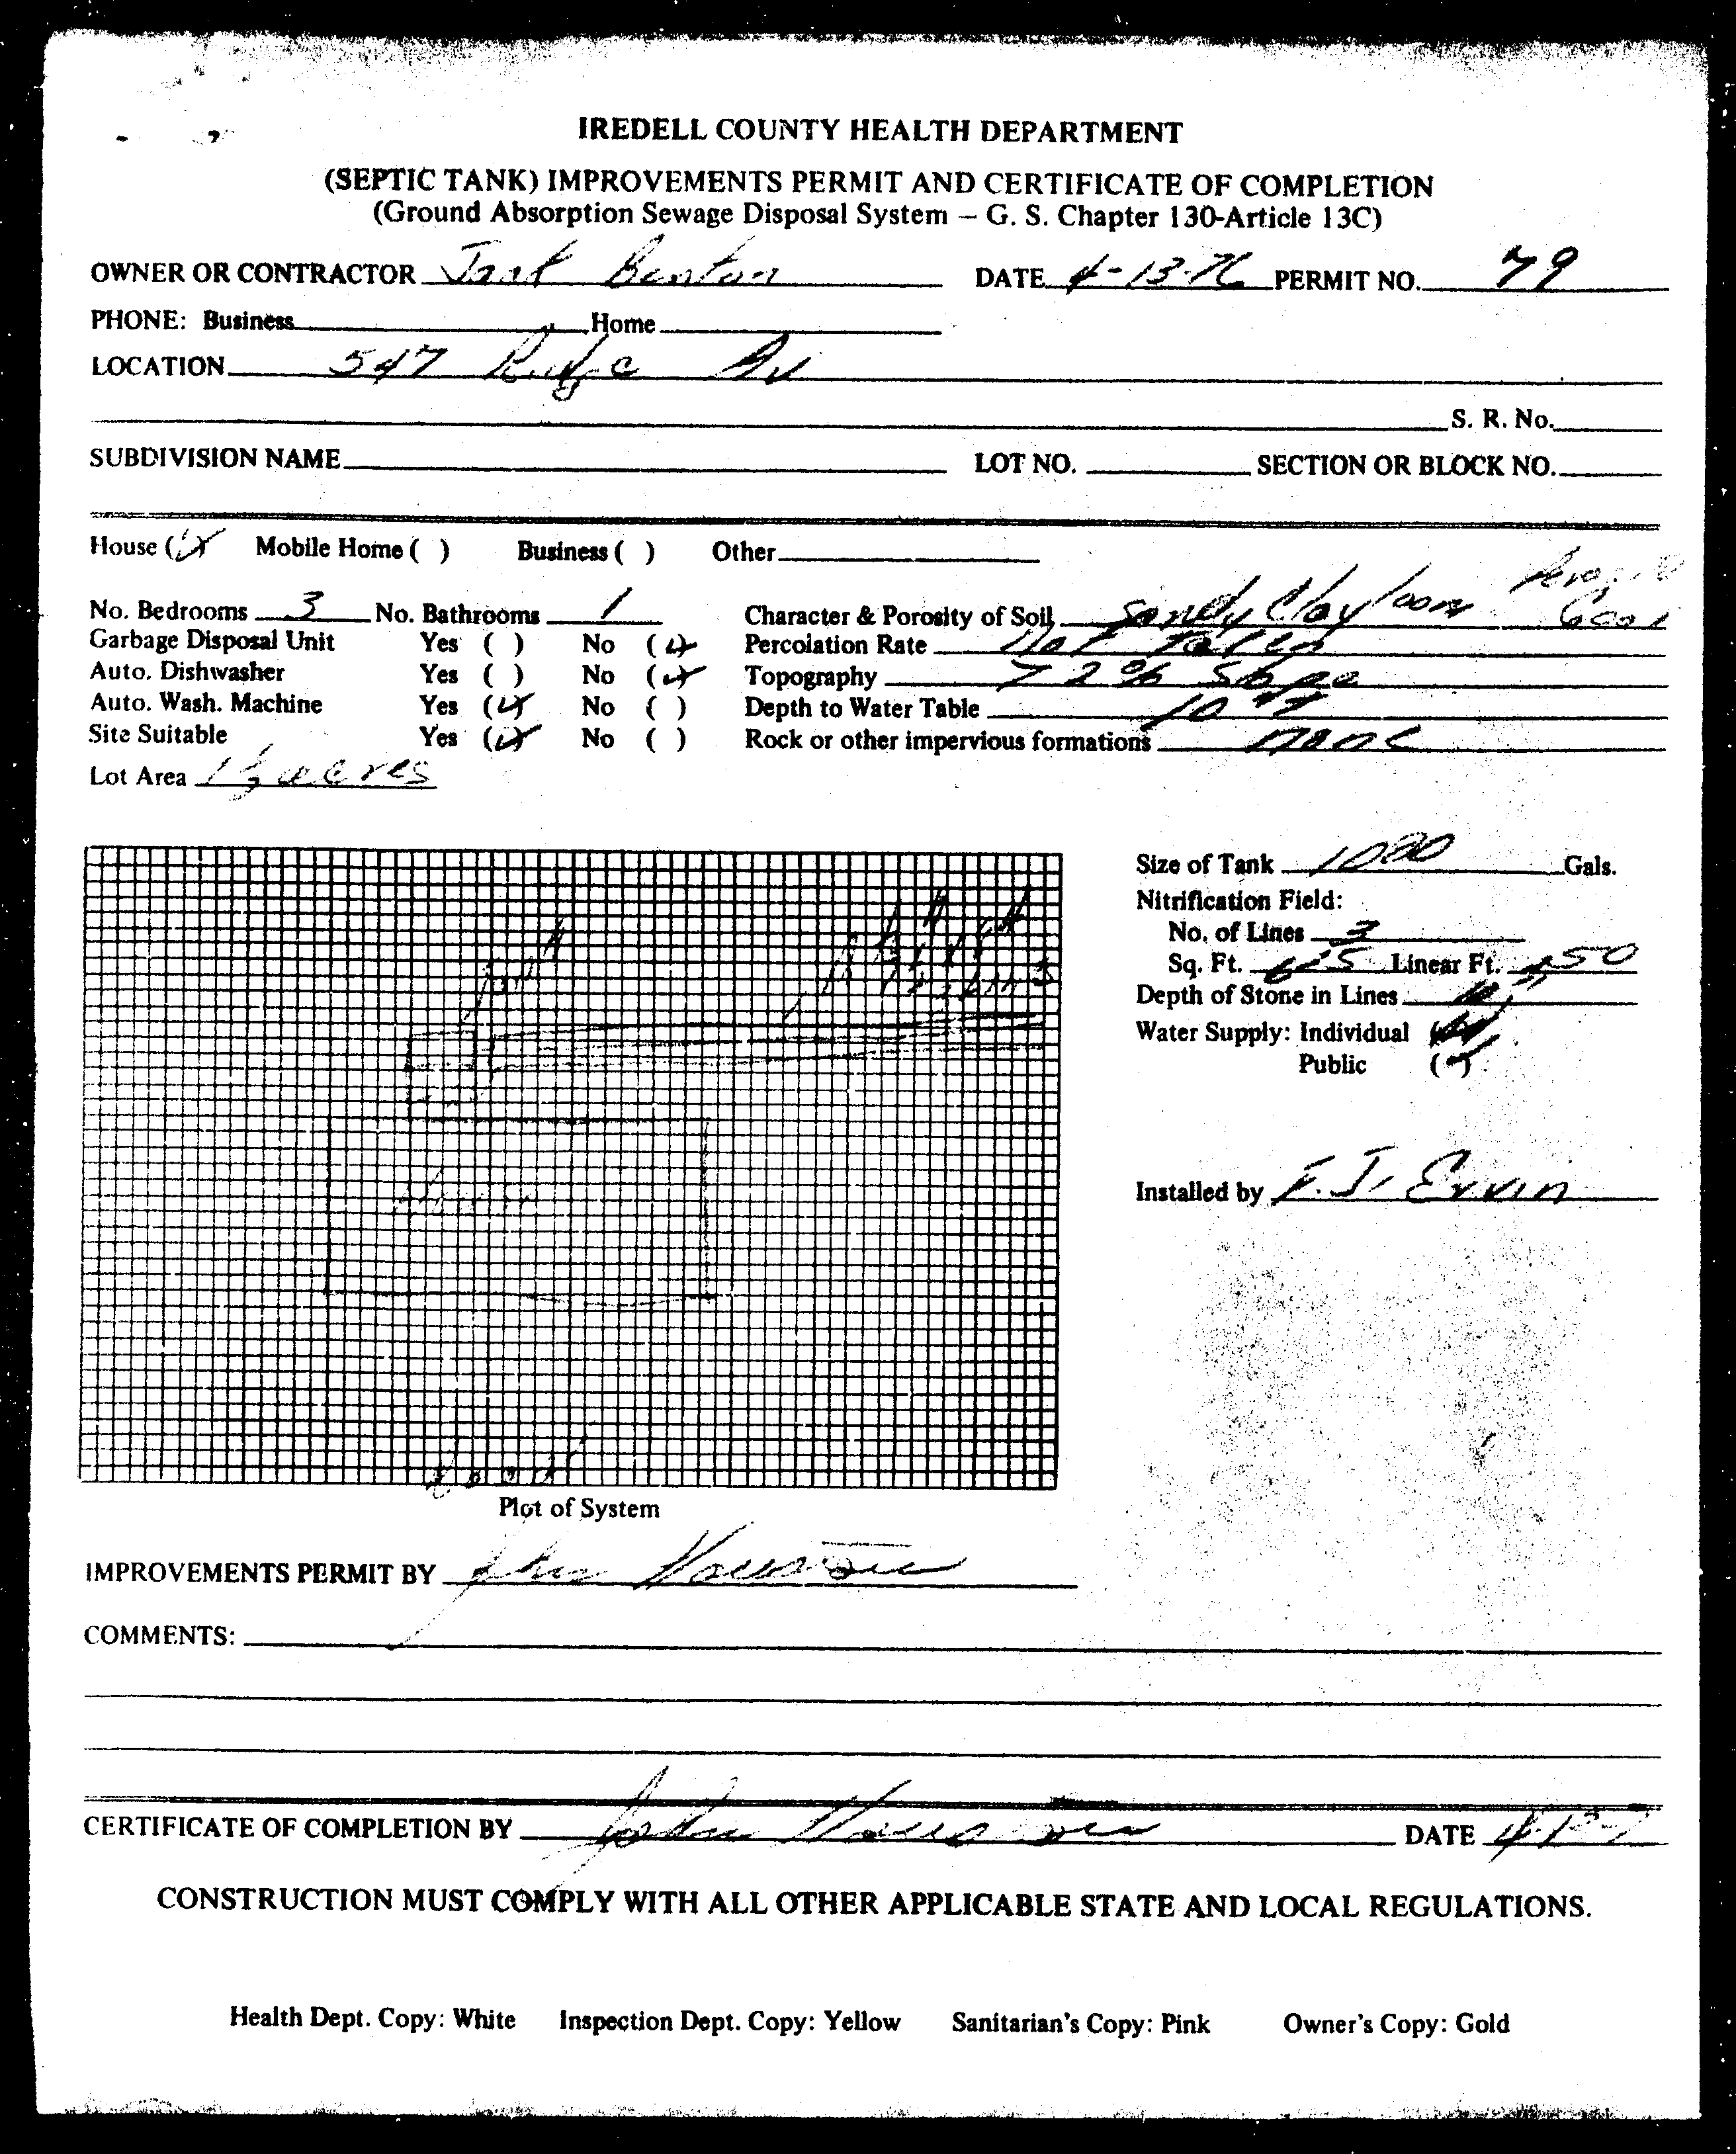 IREDELL COUNTY HEALTH DEPARTMENT
(SEPTIC TANK) IMPROVEMENTS PERMIT AND CERTIFICATE OF COMPLETION
(Ground Absorption Sewage Disposal System – G. S. Chapter 130-Article 13C)
OWNER OR CONTRACTOR Benton DATE 4-13-76 PERMIT NO. 79
PHONE: Business Home
LOCATION 547 Ridge Av
S. R. No.
SUBDIVISION NAME LOT NO. SECTION OR BLOCK NO.
House (✓) Mobile Home ( ) Business ( ) Other
No. Bedrooms 3 No. Bathrooms 1 Character & Porosity of Soil Sandy Clay loam Good
Garbage Disposal Unit Yes ( ) No (✓) Percolation Rate Not
Auto. Dishwasher Yes ( ) No (✓) Topography > 2 % Slope
Auto. Wash. Machine Yes (✓) No ( ) Depth to Water Table 10
Site Suitable Yes (✓) No ( ) Rock or other impervious formations none
Lot Area acres
Size of Tank 1000 Gals.
Nitrification Field:
No. of Lines 3
Sq. Ft. Linear Ft.
Depth of Stone in Lines
Water Supply: Individual
Public (✓)
Installed by F. J. Ervin
Road
Plot of System
IMPROVEMENTS PERMIT BY John
COMMENTS:
CERTIFICATE OF COMPLETION BY John DATE
CONSTRUCTION MUST COMPLY WITH ALL OTHER APPLICABLE STATE AND LOCAL REGULATIONS.
Health Dept. Copy: White Inspection Dept. Copy: Yellow Sanitarian's Copy: Pink Owner's Copy: Gold